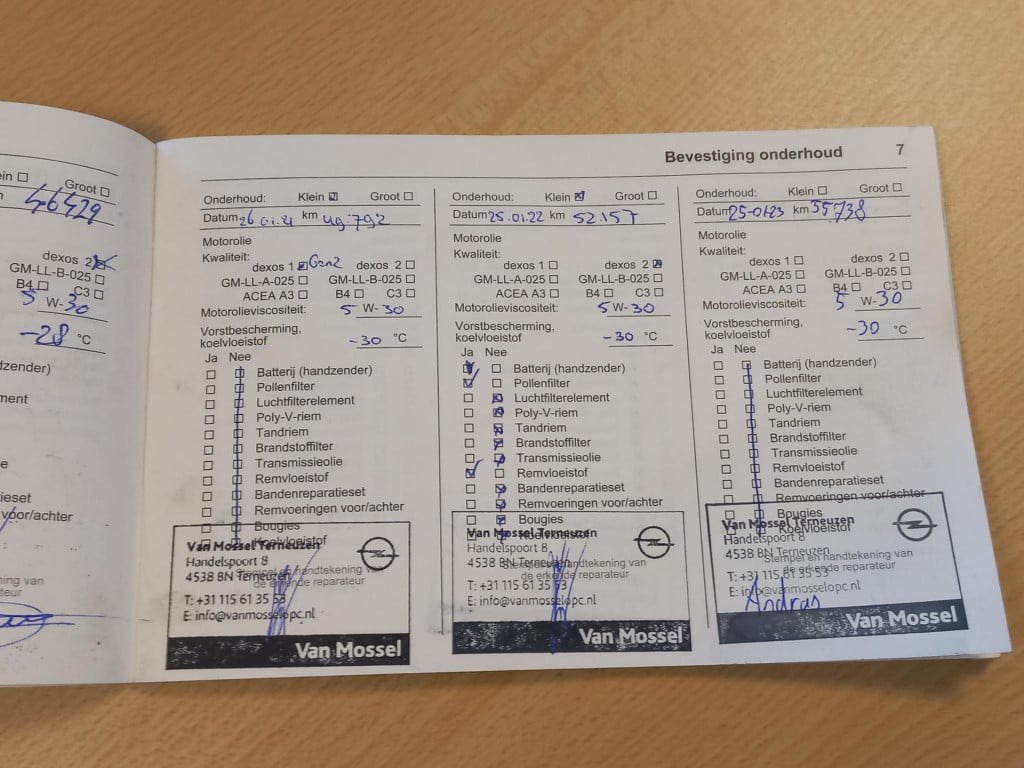 Bevestiging onderhoud 7
Groot
46429
dexos 2
GM-LL-B-025
B4 C3
5 W-30
-28 °C
dzender)
ment
e
ieset
voor/achter
ning van
ateur
Onderhoud: Klein Groot
Datum 26.01.21 km 49.792
Motorolie
Kwaliteit:
dexos 1 Gen2 dexos 2
GM-LL-A-025 GM-LL-B-025
ACEA A3 B4 C3
Motorolieviscositeit: 5 W-30
Vorstbescherming,
koelvloeistof -30 °C
Ja Nee
Batterij (handzender)
Pollenfilter
Luchtfilterelement
Poly-V-riem
Tandriem
Brandstoffilter
Transmissieolie
Remvloeistof
Bandenreparatieset
Remvoeringen voor/achter
Bougies
Koelvloeistof
Stempel en handtekening van
de erkende reparateur
Van Mossel Terneuzen
Handelspoort 8
4538 BN Terneuzen
T: +31 115 61 35 53
E: info@vanmosselopc.nl
Van Mossel
Onderhoud: Klein Groot
Datum 25.01.22 km 52.157
Motorolie
Kwaliteit:
dexos 1 dexos 2
GM-LL-A-025 GM-LL-B-025
ACEA A3 B4 C3
Motorolieviscositeit: 5 W-30
Vorstbescherming,
koelvloeistof -30 °C
Ja Nee
Batterij (handzender)
Pollenfilter
Luchtfilterelement
Poly-V-riem
Tandriem
Brandstoffilter
Transmissieolie
Remvloeistof
Bandenreparatieset
Remvoeringen voor/achter
Bougies
Koelvloeistof
Stempel en handtekening van
de erkende reparateur
Van Mossel Terneuzen
Handelspoort 8
4538 BN Terneuzen
T: +31 115 61 35 53
E: info@vanmosselopc.nl
Van Mossel
Onderhoud: Klein Groot
Datum 25-01-23 km 55.738
Motorolie
Kwaliteit:
dexos 1 dexos 2
GM-LL-A-025 GM-LL-B-025
ACEA A3 B4 C3
Motorolieviscositeit: 5 W-30
Vorstbescherming,
koelvloeistof -30 °C
Ja Nee
Batterij (handzender)
Pollenfilter
Luchtfilterelement
Poly-V-riem
Tandriem
Brandstoffilter
Transmissieolie
Remvloeistof
Bandenreparatieset
Remvoeringen voor/achter
Bougies
Koelvloeistof
Stempel en handtekening van
de erkende reparateur
Van Mossel Terneuzen
Handelspoort 8
4538 BN Terneuzen
T: +31 115 61 35 53
E: info@vanmosselopc.nl
Andras
Van Mossel